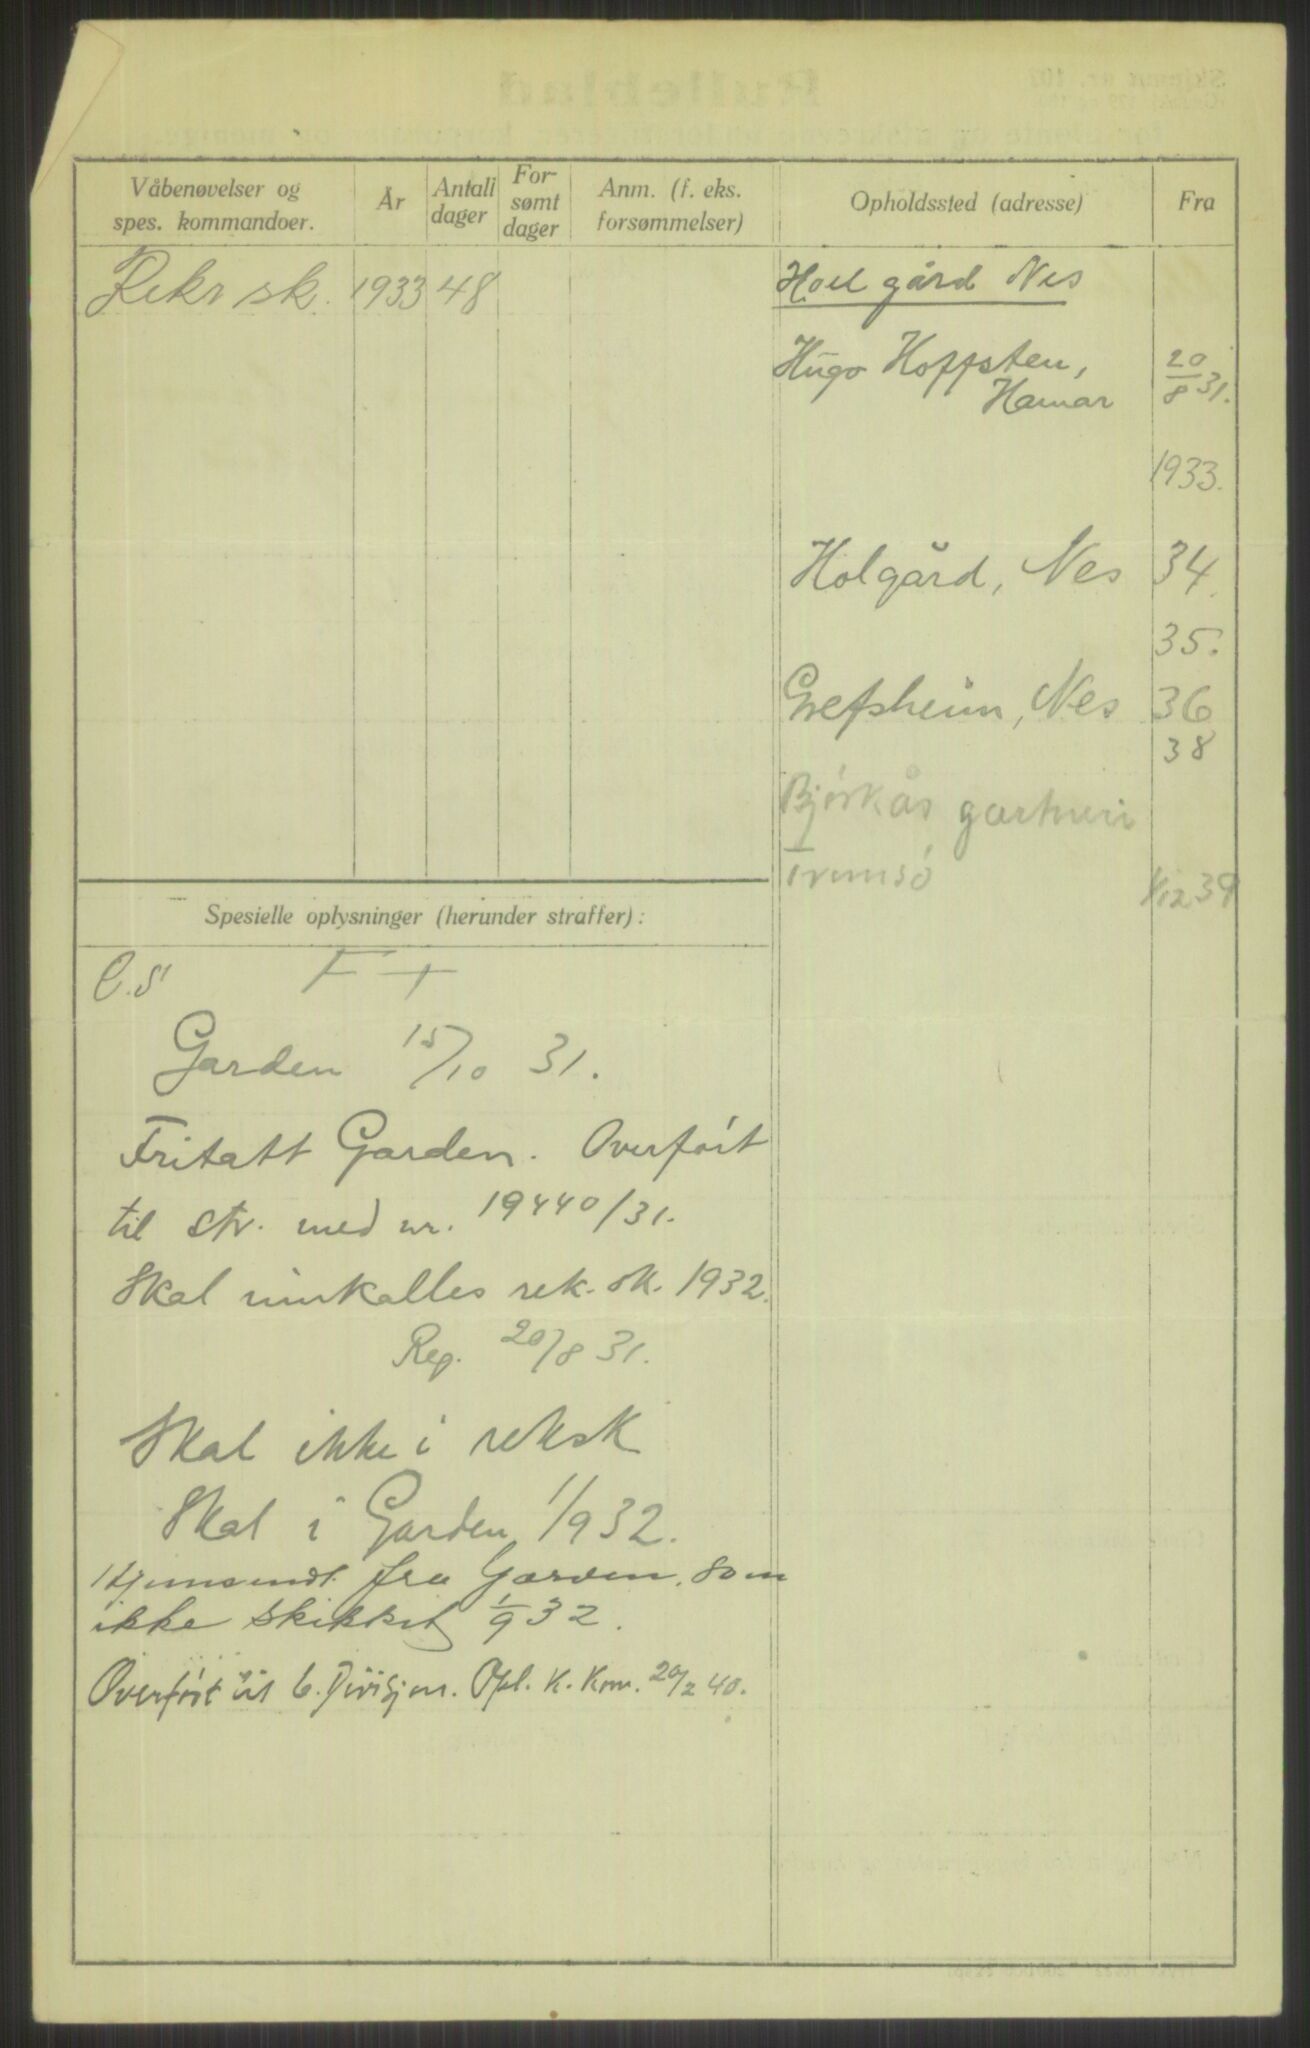 Våbenøvelser og
spes. kommandoer.
År
Antall
dager
For-
sømt
dager
Anm. (f. eks.
forsømmelser)
Opholdssted (adresse)
Fra
Rekr sk. 1933 48
Hoel gård Nes
Hugo Hoffsten,
Hamar 20/8 31.
1933.
Holgård, Nes 34.
35.
Grefsheim, Nes 36
38
Bjørkås gartneri
Tromsö 1/12 39
Spesielle oplysninger (herunder straffer):
C.S F +
Garden 15/10 31.
Fritatt Garden. Overført
til str. med nr. 19440/31.
Skal innkalles rek. sk. 1932.
Reg. 20/8 31.
Skal ikke i reksk
Skal i Garden 1/9 32.
Hjemsendt fra Garden, som
ikke skikket 1/9 32.
Overført til 6. Divisjon. Opl. K. Kom. 20/2 40.
Rulleblad